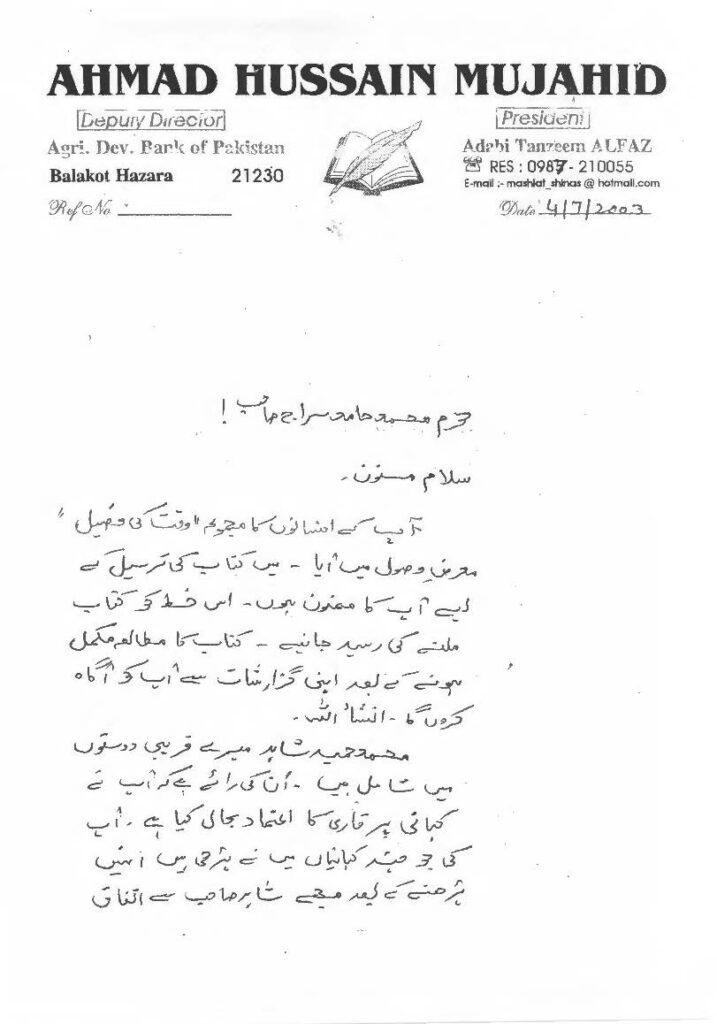 AHMAD HUSSAIN MUJAHID
Deputy Director
President
Agri. Dev. Bank of Pakistan
Adabi Tanzeem ALFAZ
Balakot Hazara 21230
RES : 0987 - 210055
E-mail :- mashiat_shinas @ hotmail.com
Ref No
Date 4/7/2003
محترم محمد حامد سراج صاحب !
سلام مسنون ۔
آپ کے افسانوں کا مجموعہ "وقت کی فصیل"
معرضِ وصول میں آیا ۔ میں کتاب کی ترسیل کے
لیے آپ کا ممنون ہوں ۔ اس خط کو کتاب
ملنے کی رسید جانیے ۔ کتاب کا مطالعہ مکمل
ہونے کے بعد اپنی گزارشات سے آپ کو آگاہ
کروں گا ۔ انشاء اللہ ۔
محمد حمید شاہد میرے قریبی دوستوں
میں شامل ہیں ۔ اُن کی رائے ہے کہ آپ نے
کہانی پر قاری کا اعتماد بحال کیا ہے ۔ آپ
کی جو چند کہانیاں میں نے پڑھی ہیں انہیں
پڑھنے کے بعد مجھے شاہد صاحب سے اتفاق